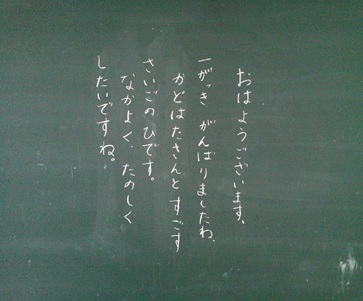 おはようございます、
一がっき がんばりましたね、
かどはたさんと すごす
さいごのひです。
なかよく、たのしく
したいですね。